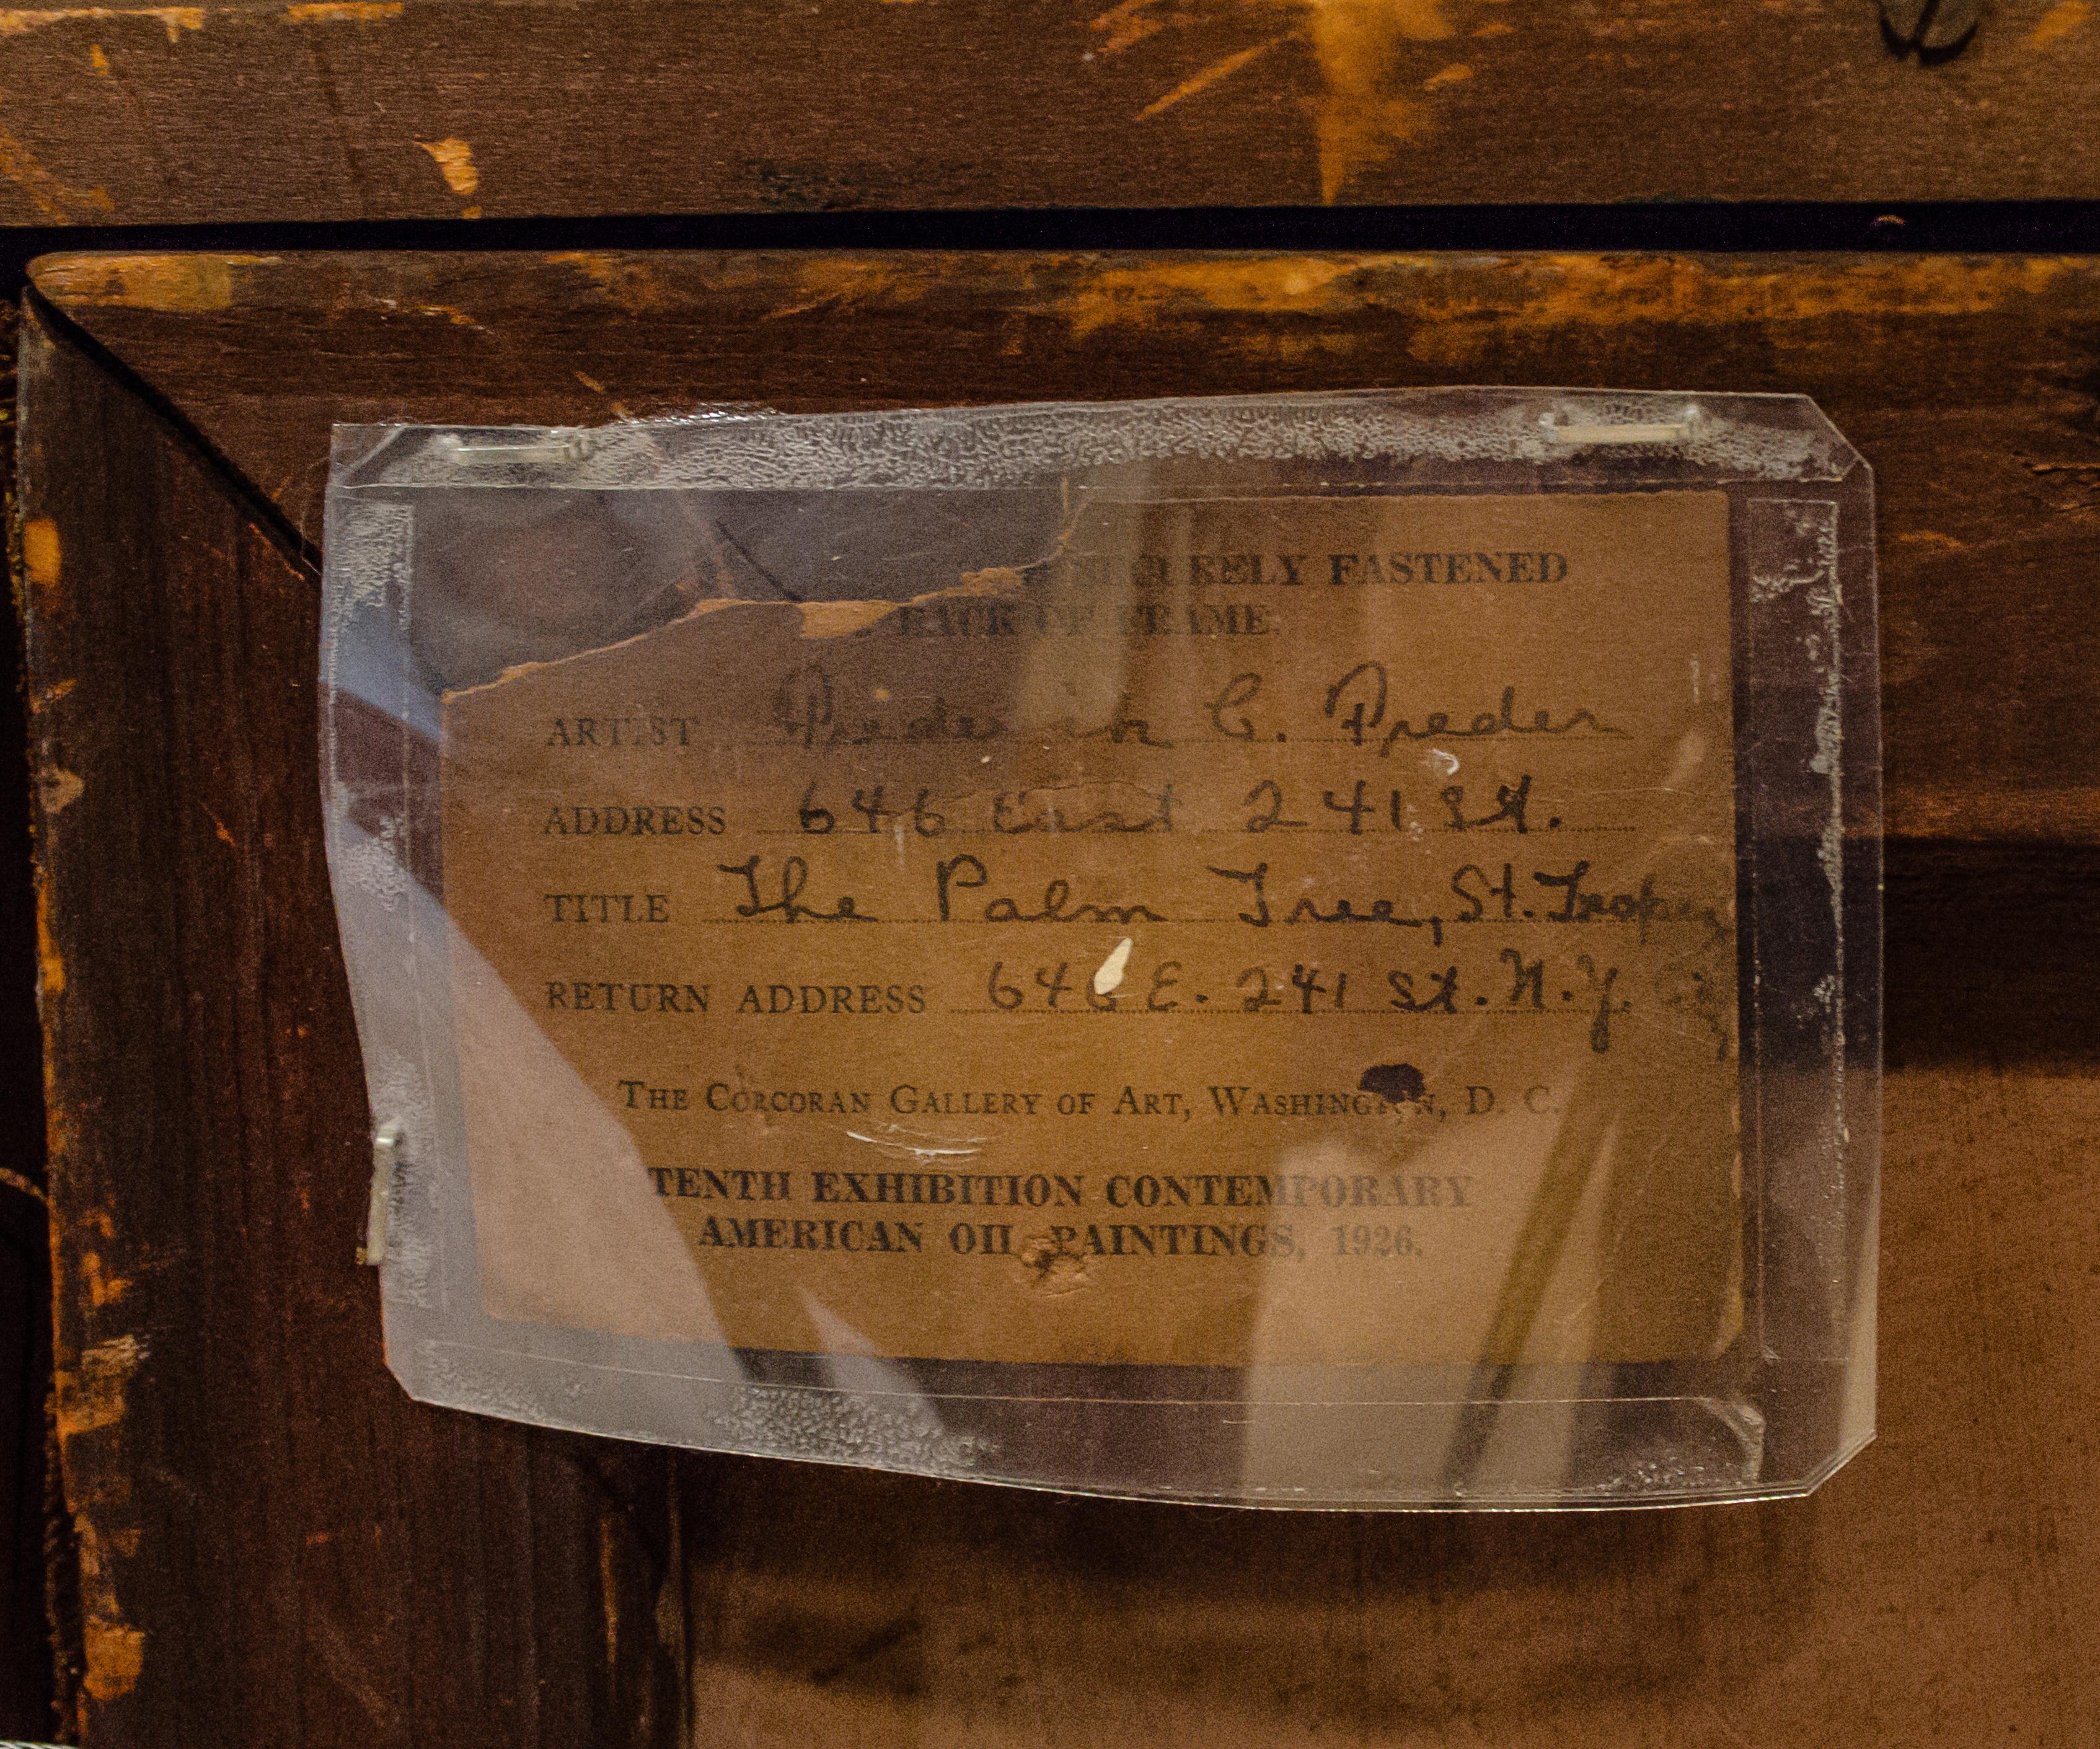 SECURELY FASTENED
BACK OF FRAME.
ARTIST Frederick C. Frieder
ADDRESS 646 East 241 St.
TITLE The Palm Tree, St. Tropez
RETURN ADDRESS 646 E. 241 St. N.Y. City
THE CORCORAN GALLERY OF ART, WASHINGTON, D. C.
TENTH EXHIBITION CONTEMPORARY
AMERICAN OIL PAINTINGS, 1926.